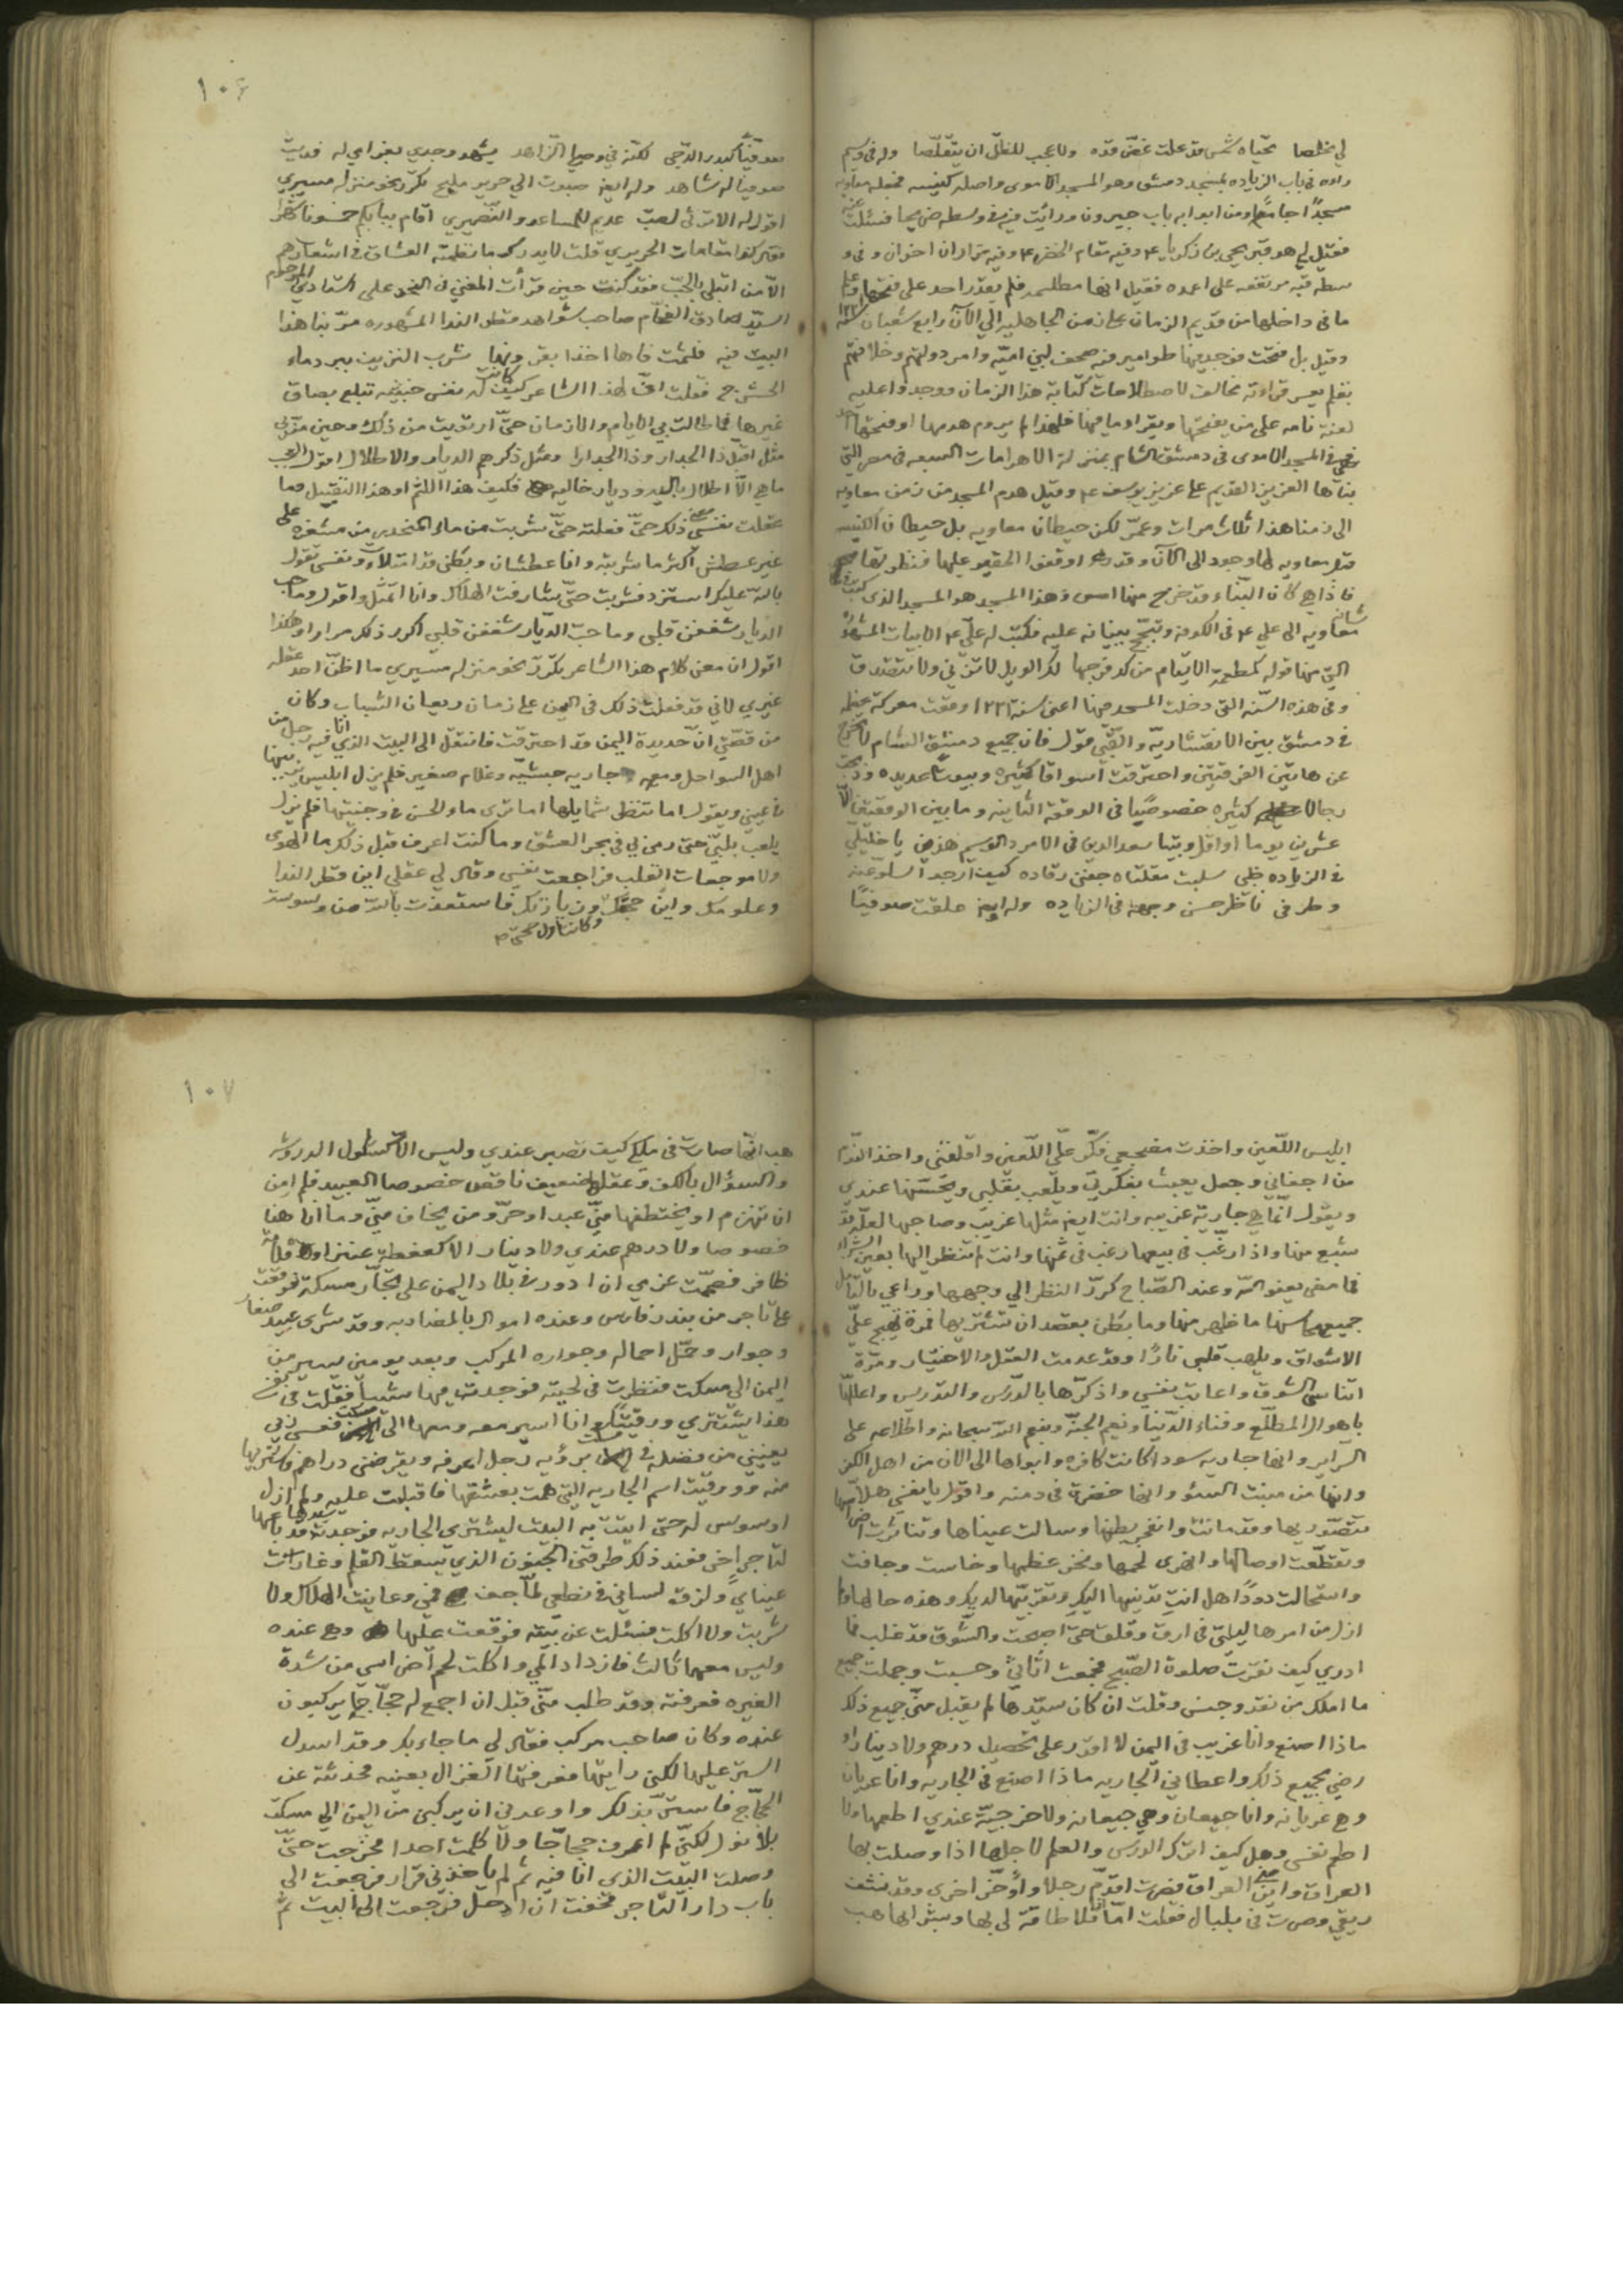 لي مخلصا تحياه شمس قد علت غصن قده ولا عجب للظل ان يتقلصا وله في وسيم
راده في باب الزياده بمسجد دمشق وهو المسجد الاموى واصله كنيسه فجعله معاويه
مسجدًا جامعًا ومن ابوابه باب جيرون ورائيت فيه في وسطه ضريحا فسئلت عنه
فقيل لي هو قبر يحيى بن زكريا ع وفيه مقام الخضر ع وفيه مزاران اخران وفي و
سطه قبه مرتفعه على اعمده فقيل انها مطلسمه فلم يقدر احد على فتحها وعلم
ما في داخلها من قديم الزمان من الجاهليه الي الآن رابع شعبان سنه ١٢٢١
وقيل بل فتحت فوجد فيها طوامير فيه صحف لبني اميّه وامر دولتهم وخلافتهم
بقلم يعسر قرائته مخالف لاصطلاحات كتابة هذا الزمان ووجدوا عليه
لعنة تامه على من يفتحها ويقراء ما فيها فلهذا لم يروم هدمها او فتحها احد
في المسجد الاموى في دمشق الشام بمنزلة الاهرامات السبعه في مصر التي
بناها العزيز القديم عزيز يوسف ع وقيل هدم المسجد من زمن معاويه
الى زمننا هذا ثلاث مرات وعمّر لكن حيطان معاويه بل حيطان الكنيسه
قبل معاويه لها وجود الى الآن وقد اوقفني القيم عليها فنظرتها
فاذا هي كان البناء قد خرج منها امس وهذا المسجد هو المسجد الذى كتب في شانه
معاويه الى علي ع في الكوفه وتبجح ببنيانه عليه فكتب له علي ع الابيات المشهوره
التي منها قوله كمطعمة الايتام من كد فرجها لك الويل لا تزني ولا تتصدق
وفي هذه السنه التي دخلت المسجد فيها اعني سنة ١٢٢١ وقعت معركة عظيمه
في دمشق بين الانقشاريّه والقبي قول فان جميع دمشق الشام لا تخرج
عن هاتين الفرقتين واحترقت اسواقا كثيره وبيوتا عديده وذبحت
رجالا كثيره خصوصًا في الوقعة الثانيه وما بين الوقعتين الا
عشرين يوما او اقل وبيتا سعد الدين في الامرد الوسيم هذين يا خليلي
في الزياده ظبي سلبت مقلتاه جفني رقاده كيف ارجوا السلو عنه
وطرفي ناظر حسن وجهه في الزياده وله ايضا علقت صوفيًا
١٠٦
صوفيًّا كبدر الدجى لكنّه في وصلي الزاهد يشهد وجدي بغرامي له فديت
صوفيا له شاهد وله ايضا صبوت الي حرير مليح تكرّر نحو منزله مسيري
اقول له الا ترثي لصب عديم للمساعد والنصيري اقام ببابكم خمسون شهرًا
فقال كذا مقامات الحريري قلت لا يدرك ما نظمته العشاق في اشعارهم
الّا من ابتلي بالحبّ فقد كنت حين قرأت المغني في النحو على استادي المرحوم
السيّد صادق الفخام صاحب شواهد قطر الندا المشهوره مرّ بنا هذا
البيت فيه فلثمت فاها اخذا بقرونها شرب النزيف ببرد ماء
الحشرج فقلت افّ لهذا الشاعر كيف كانت له نفس خبيثه تبلع بصاق
غيرها فما طالت بي الايام والازمان حتىّ ارتويت من ذلك وحين مرّ بي
مثل اقبّل ذا الجدار وذا الجدارا ومثل ذكرهم الديار والاطلال اقول العجب
ما هي الّا اطلال باليه وديار خاليه فكيف هذا اللثم او هذا التقبيل فما
عقلت نفسي معنى ذلك حتىّ فعلته حتىّ شربت من ماء المنحدر من مشغره على
غير عطش اكثر ما شربته وانا عطشان وبطني قد امتلاءت ونفسي تقول
بالله عليك استزد فشربت حتىّ شارفت الهلاك وانا اتمثّل واقول وما حبّ
الديار شغفن قلبي وما حبّ الديار شغفن قلبي اكرر ذلك مرارا وهكذا
اقول ان معنى كلام هذا الشاعر تكرّر نحو منزله مسيري ما اظنّ احد عقله
غيري لاني قد فعلت ذلك في اليمن زمان ريعان الشباب وكان
من قصّتي انّ حديدة اليمن قد احترقت فانتقل الى البيت الذي انا فيه رجل من
اهل السواحل ومعه جاريه حبشيّه وغلام صغير فلم يزل ابليس يزينها
في عيني ويقول اما تنظر شمايلها اما ترى ماء الحسن في وجنتيها فلم يزل
يلعب بلبّي حتى رمى بي في بحر العشق وما كنت اعرف قبل ذلك ما الهوى
ولا موجعات القلب فراجعت نفسي وقال لي عقلي اين قطر الندا
وعلومك واين حججك وزيارتك فاستعذت بالله من وسوسة
وكانت اول حجتي
ابليس اللّعين واخذت مضجعي فكّر عليّ اللّعين واقلقني واخذ النوم
من اجفاني وجعل يعبث بفكرتي ويلعب بقلبي ويحسّنها عندي
ويقول انّما هي جارية غريبه وانت ايضا مثلها غريب وصاحبها لعلّه قد
شبع منها واذا رغّب في بيعها رغب في ثمنها وانت لم تنظر اليها بعين الشراء
فما مضى يعفو الله وعند الصّباح كرّر النظر الي وجهها وراعي بالتأمّل
جميع محاسنها ما ظهر منها وما بطن بقصد ان تشتريها فمرة تهيج عليّ
الاشواق ويلهب قلبي نارًا وقد عدمت العقل والاختيار ومرّة
اتناسى الشوق واعاتب نفسي واذكّرها بالدّرس والتدريس واعللها
باهوال المطلّع وفناء الدّنيا ونعيم الجنّة ونعم الله سبحانه واطلاعه على
السرآير وانها جاريه سودا كانت كافره وابواها الى الان من اهل الكفر
وانها من منبت السوء وانها خضرة في دمنه واقول يا نفسي هلّا
تتصوّريها وقد ماتت وانفجر بطنها وسالت عيناها وتناثرت اضراسها
وتقطّعت اوصالها وانهرى لحمها ونخر عظمها وخاست وجافت
واستحالت دودًا هل انتِ تدنيها اليكِ وتقربيها لديك وهذه حالها ولم
ازل من امرها ليلتي في ارق وقلق حتىّ اصبحت والشّوق قد غلب فما
ادري كيف نقرت صلوة الصّبح فجمعت اثاثي وحسبت وجملت جميع
ما املك من نقد وجنس وقلت ان كان سيّدها لم يقبل منّي جميع ذلك
ماذا اصنع وانا غريب في اليمن لا اقدر على تحصيل درهم ولا دينار او
رضي بجميع ذلك واعطاني الجاريه ماذا اصنع في الجاريه وانا عريان
وهي عريانه وانا جيعان وهي جيعانه ولا خرجيّة عندي اطعمها ولا
اطعم نفسي وهل كيف اترك الدرس والعلم لاجلها اذا وصلت بها
العراق واين منّي العراق فصرت اقدّم رجلا واؤخّر اخرى وقد نشف
ريقي وصرت في بلبال فقلت امّا انا فلا طاقة لي بها وبشرائها هب
١٠٧
هب انّها صارت في ملكي كيف تصير عندي وليس الا كشكول الدروشه
والسؤال بالكف وعقلها ضعيف ناقص خصوصا العبيد فلم امن
ان تنهزم او يختطفها منّي عبد او حرّ ومن يخاف منّي وما انا هنا
خصوصا ولا درهم عندي ولا دينار الا كعفطة عنز او قلامة
ظافر فصمّمت عزمي ان ادور في بلاد اليمن على تجّار مسكة فوقعت
على تاجر من بندر فارس وعنده اموال بالمضاربه وقد شرى عبيد صغار
وجوار وحمّل احماله وجواره المركب وبعد يومين يسير من
اليمن الي مسكت فنظرت في لحيته فوجدت فيها شيبا فقلت في نفسي
هذا يشتري ورقيتك وانا اسير معه ومعها الى مسكت فعسى ربي
يعينني من فضله في مسكت برؤيه رجل اعرفه ويقرضني دراهم فاشتريها
منه وورقيت اسم الجاريه التي همت بعشقها فاقبلت عليه ولم ازل
اوسوس له حتى اتيت به البيت ليشتري الجاريه فوجدت سيدها قد باعها
لتاجر اخر فعند ذلك طرقني الجنون الذي يسقط القلم وغارت
عيناي ولزق لساني في نطعي لمّا جف فمي وعاينت الهلاك ولا
شربت ولا اكلت فسئلت عن بيته فوقعت عليها وهي عنده
وليس معهما ثالث فازداد المي واكلت لحم اضراسي من شدة
الغيره فعرفته وقد طلب منّي قبل ان اجمع له حجّاجا يركبون
عنده وكان صاحب مركب فقال لي ما جاء بك وقد اسدل
الستر عليها لكني رايتها فعرفتها الغزال بعينه فحدثته عن
الحجّاج فاستبشر بذلك واوعدني ان يركبني من اليمن الي مسكت
بلا نول لكنّي لم اعرف حجاجا ولا كلمت احدا فخرجت حتىّ
وصلت البيت الذي انا فيه ثم لم ياخذني قرار فرجعت الى
باب دار التاجر فخفت ان ادخل فرجعت الى البيت ثم